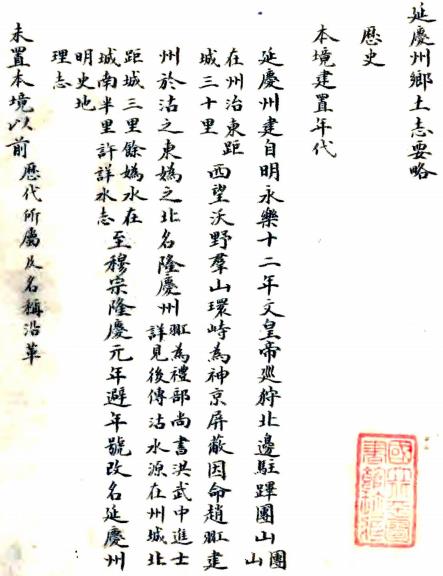 延慶州鄉土志要略
歷史
本境建置年代
延慶州建自明永樂十二年文皇帝巡狩北邊駐蹕團山
團
山
在州治東距
城三十里
西望沃野羣山環峙為神京屏蔽因命趙羾建
州於沽之東嬀之北名隆慶州
羾為禮部尚書洪武中進士
詳見後傳沽水源在州城北
距城三里餘嬀水在
城南半里許詳水志
至穆宗隆慶元年避年號改名延慶州
明史地
理志
未置本境以前歷代所屬及名稱沿革
國立北平圖
書館珍藏